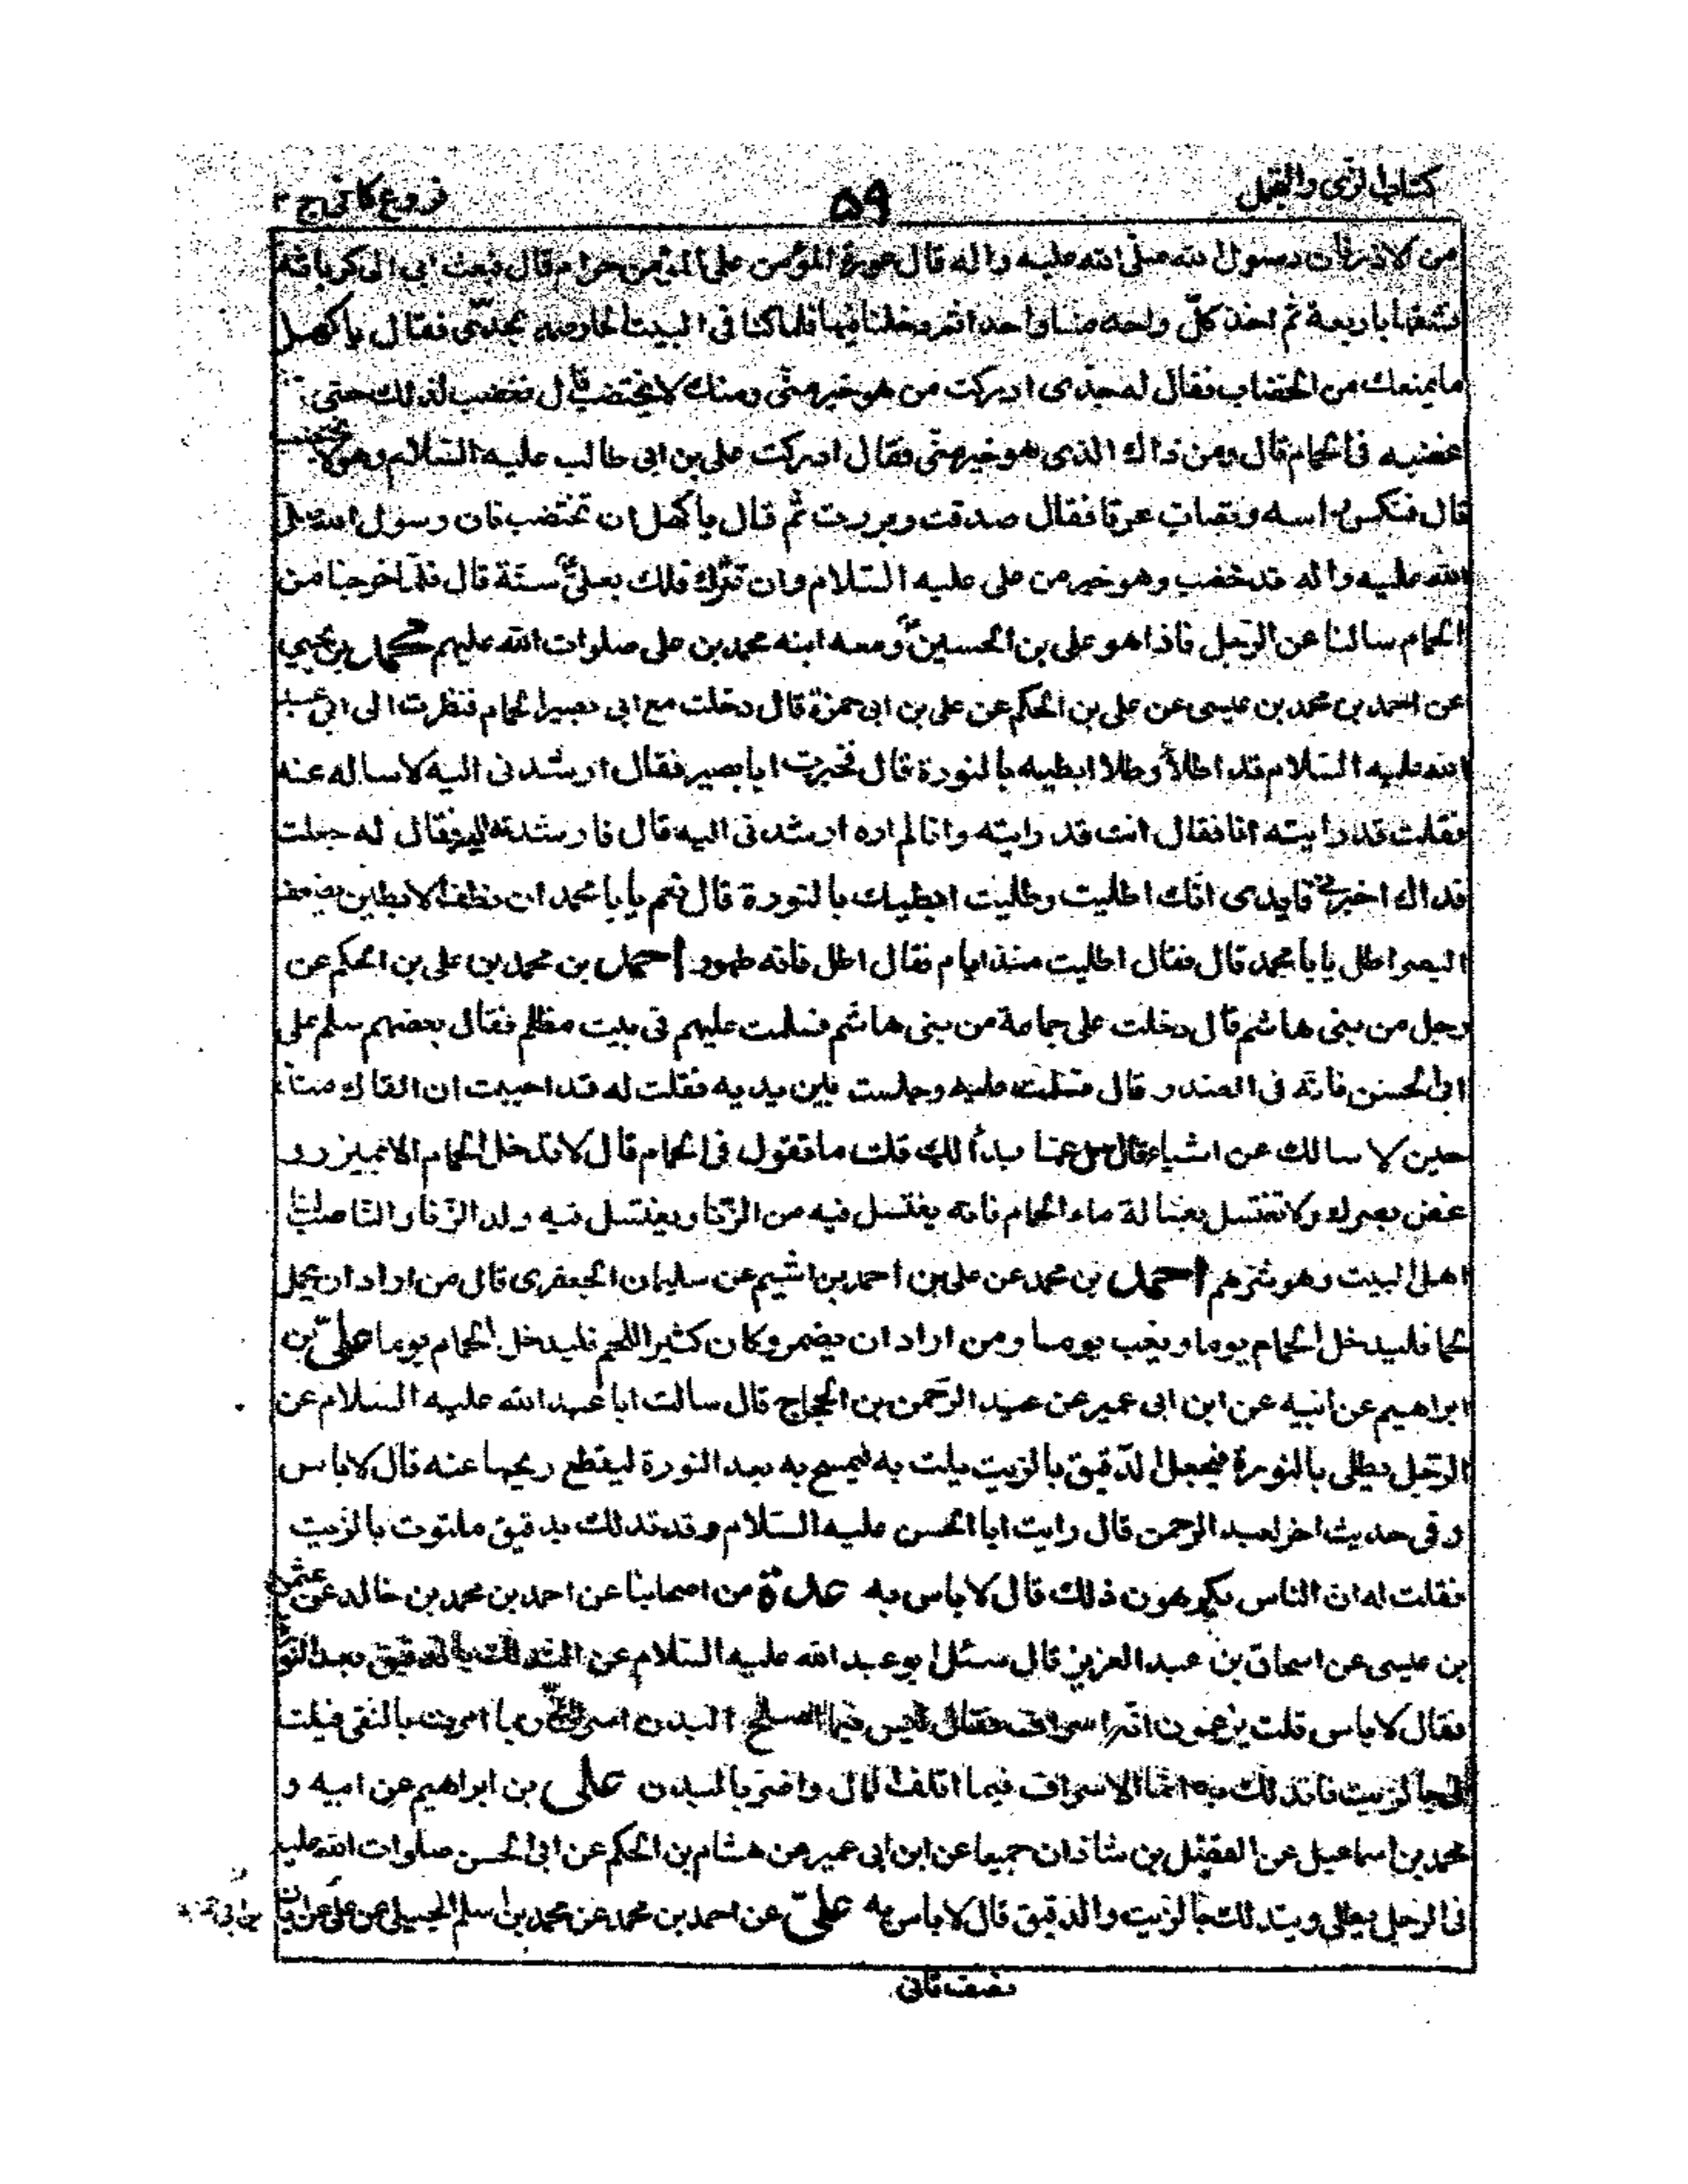 كتاب الزى والتجمل
۵۹
فروع كافى ج ۲
من الازر فان رسول الله صلى الله عليه واله قال عورة المؤمن على المؤمن حرام قال فبعث ابى الى كرباسة
فشقها باربعة ثم اخذ كل واحد منا واحدا ثم دخلنا فيها فلما كنا فى البيت الحار صمد لجدى فقال يا كهل
ما يمنعك من الخضاب فقال له جدى ادركت من هو خير منى ومنك لا يختضب قال فغضب لذلك حتى
غضبه فى الحمام قال ومن ذاك الذى هو خير منى فقال ادركت على بن ابى طالب عليه السلام وهو لا يختضب
قال فنكس راسه وتصاب عرقا فقال صدقت وبررت ثم قال يا كهل ان تختضب فان رسول الله صلى
الله عليه واله قد خضب وهو خير من على عليه السلام وان تترك فلك بعلىّ سنة قال فلما خرجنا من
الحمام سالنا عن الرجل فاذا هو على بن الحسين ومعه ابنه محمد بن على صلوات الله عليهم محمد بن يحيى
عن احمد بن محمد بن عيسى عن على بن الحكم عن على بن ابى حمزة قال دخلت مع ابى بصير الحمام فنظرت الى ابى عبد
الله عليه السلام قد اطلا وطلا ابطيه بالنورة قال فخبرت ابا بصير فقال ارشدنى اليه لاساله عنه
فقلت قد رايته انا فقال انت قد رايته وانا لم اره ارشدنى اليه قال فارشدته اليه فقال له جعلت
فداك اخبرنى قايدى انك اطليت وطليت ابطيك بالنورة قال نعم يا با محمد ان نتف الابطين يضعف
البصر اطل يا با محمد قال فقال اطليت منذ ايام فقال اطل فانه طهور احمد بن محمد بن على بن الحكم عن
رجل من بنى هاشم قال دخلت على جماعة من بنى هاشم فسلمت عليهم فى بيت مظلم فقال بعضهم سلم على
ابى الحسن فانه فى الصدر قال فسلمت عليه وجلست بين يديه فقلت له قد احببت ان القاك منذ
حين لاسالك عن اشياء قال سل عما بدا لك قلت ما تقول فى الحمام قال لا تدخل الحمام الا بميزر و
غض بصرك ولا تغتسل بغسالة ماء الحمام فانه يغتسل فيه من الزنا ويغتسل فيه ولد الزنا والناصب لنا
اهل البيت وهو شرهم احمد بن محمد عن على بن احمد بن اشيم عن سليمان الجعفرى قال من اراد ان يحمل
لحما فليدخل الحمام يوما ويغب يوما ومن اراد ان يضمر وكان كثير اللحم فليدخل الحمام يوما على بن
ابراهيم عن ابيه عن ابن ابى عمير عن عبد الرحمن بن الحجاج قال سالت ابا عبد الله عليه السلام عن
الرجل يطلى بالنورة فيجعل الدقيق بالزيت يلت به فيمسح به بعد النورة ليقطع ريحها عنه قال لا باس
وفى حديث اخر لعبد الرحمن قال رايت ابا الحسن عليه السلام وقد تدلك بدقيق ملتوت بالزيت
فقلت له ان الناس يكرهون ذلك قال لا باس به عدة من اصحابنا عن احمد بن محمد بن خالد عن عثمن
بن عيسى عن اسحاق بن عبد العزيز قال سئل ابو عبد الله عليه السلام عن التدلك بالدقيق بعد النورة
فقال لا باس قلت يزعمون انه اسراف فقال ليس فيما اصلح البدن اسراف ربما امرت بالنقى فيلت
لى بالزيت فاتدلك به انما الاسراف فيما اتلف المال واضر بالبدن على بن ابراهيم عن ابيه و
محمد بن اسماعيل عن الفضل بن شاذان جميعا عن ابن ابى عمير عن هشام بن الحكم عن ابى الحسن صلوات الله عليه
فى الرجل يطلى ويتدلك بالزيت والدقيق قال لا باس به على عن احمد بن محمد عن محمد بن اسلم الجبلى عن على عن ابان
نصف ثانى